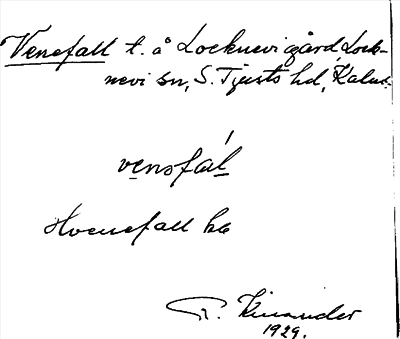 Venefall t. å Locknevi gård, Lock-
nevi sn, S. Tjusts hd, Kalm.
venəfál
Hvenefall ha
R. Kinander
1929.